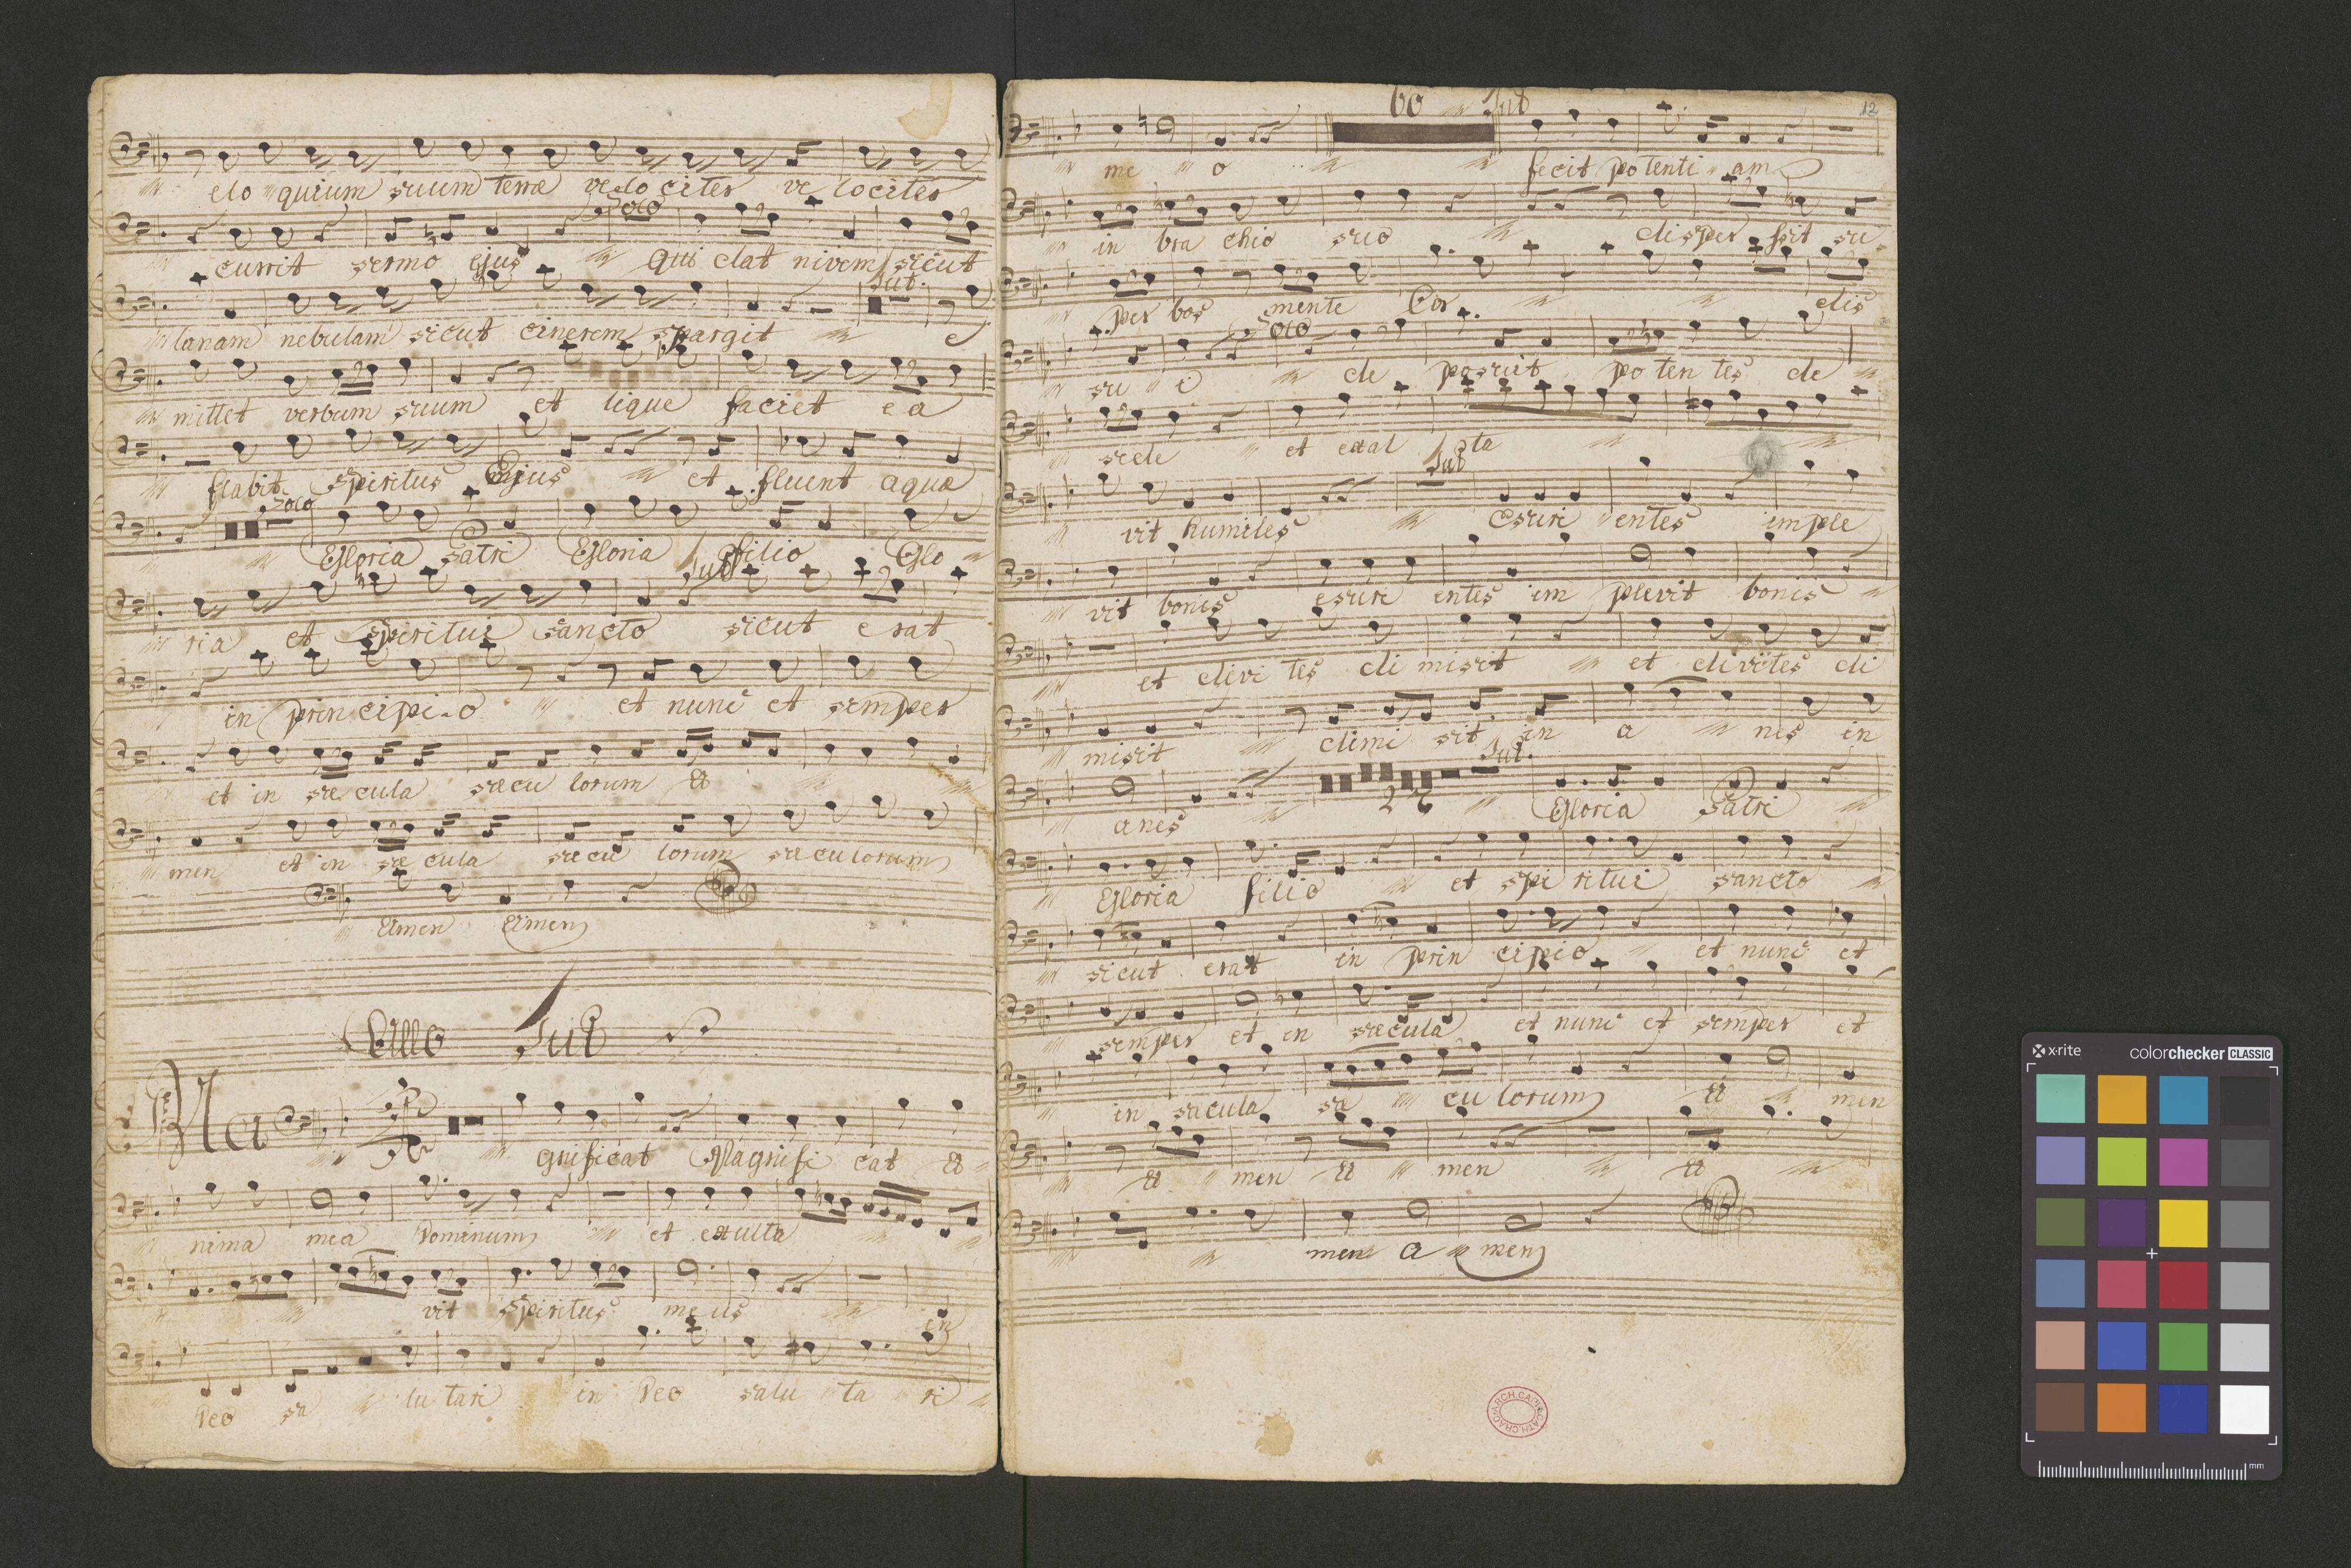 elo quium suum terræ velociter velociter
Solo
currit sermo ejus Qui dat nivem sicut
Tut.
lanam nebulam sicut cinerem spargit e
mittet verbum suum et lique faciet ea
flabit Spiritus Ejus et fluent aquæ
Solo
Gloria Patri Gloria filio Glo
Tutt
ria et Spiritui Sancto sicut erat
in principi o et nunc et semper
et in sæ cula sæcu lorum A
men et in sæ cula sæcu lorum sæculorum
Amen Amen
Allo Tutt
Ma gnificat Magnifi cat A
nima mea Dominum et exulta
vit Spiritus me us in
Deo sa lu tari in Deo salu ta ri
12
60 Tutt
me o fecit potenti am
in bra chio suo disper sit su
per bos mente Cor dis
Solo
su i de posuit po ten tes de
sede et exal ta
Tutt
vit humiles Esuri entes imple
vit bonis esuri entes im plevit bonis
et divi tes di misit et divites di
misit dimi sit in a nes in
Tut.
26
anes Gloria Patri
Gloria filio et spi ritui sancto
sicut erat in prin cipio et nunc et
semper et in sæcula et nunc et semper et
in sæcula sæ cu lorum A men
A men A men A
men a men
x·rite colorchecker CLASSIC
mm